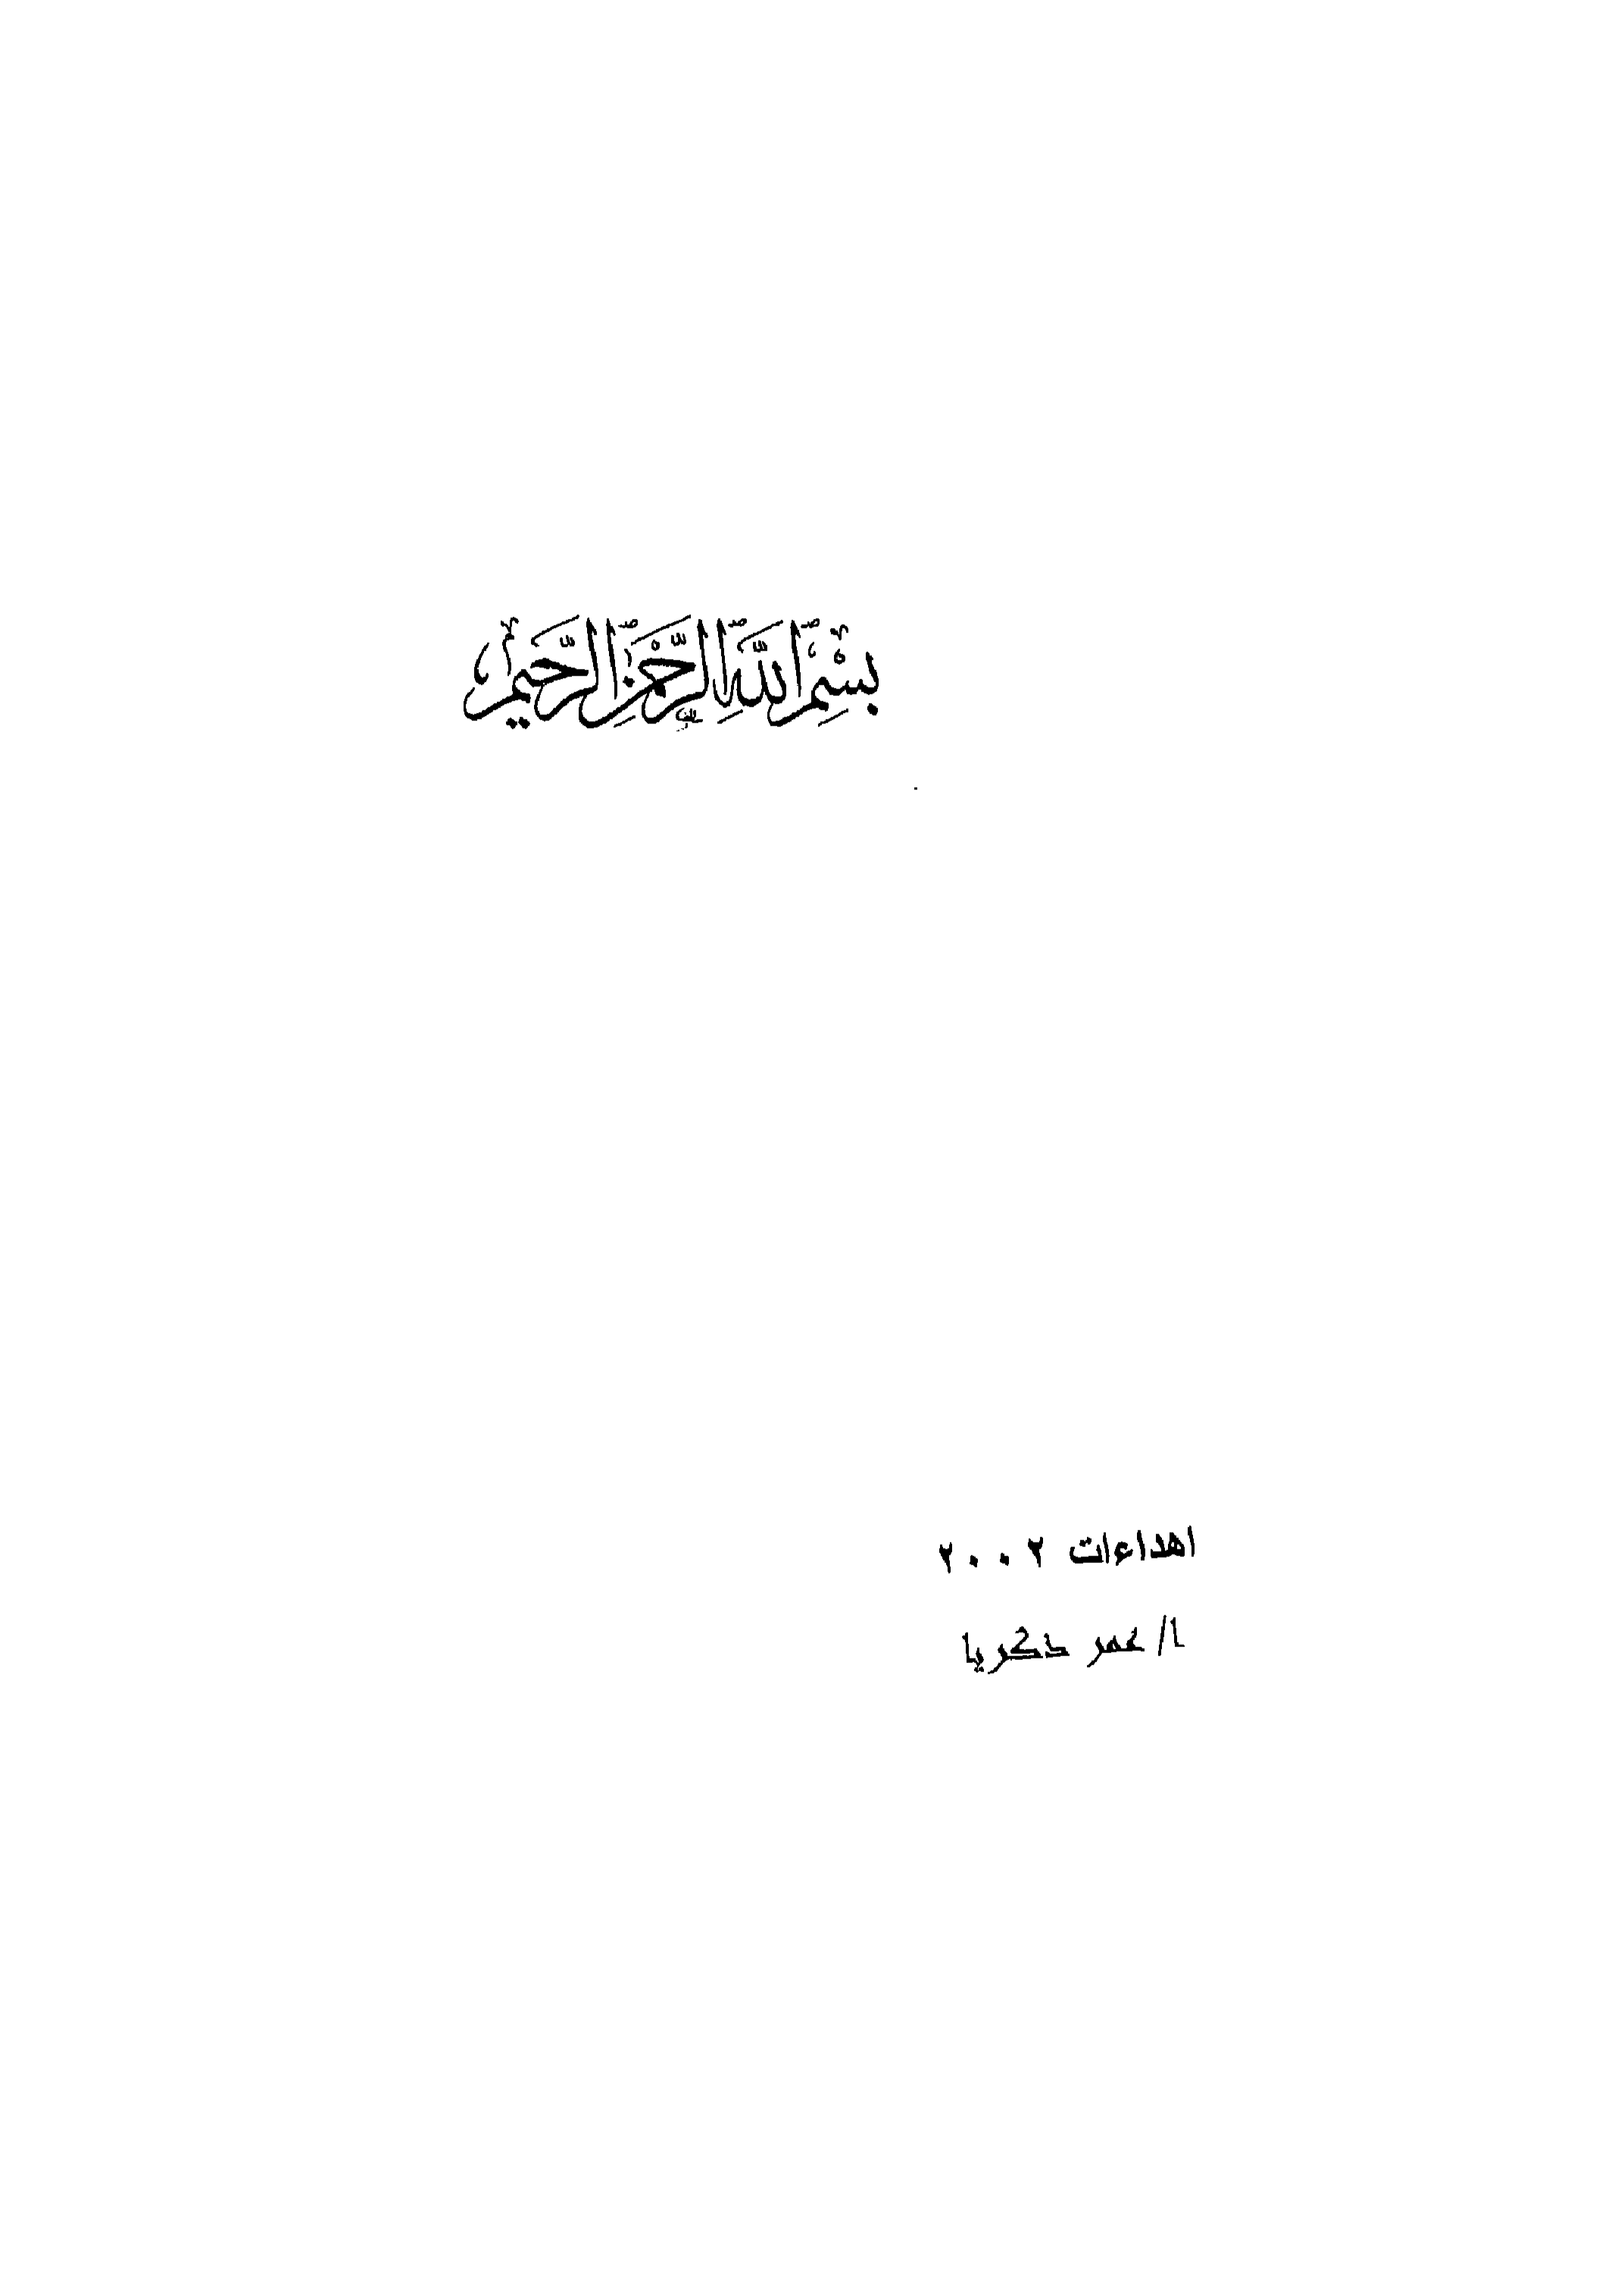 بِسْمِ اللَّهِ الرَّحْمَٰنِ الرَّحِيمِ
اهداءات ٢٠٠٢
ا/ عمر ذكريا